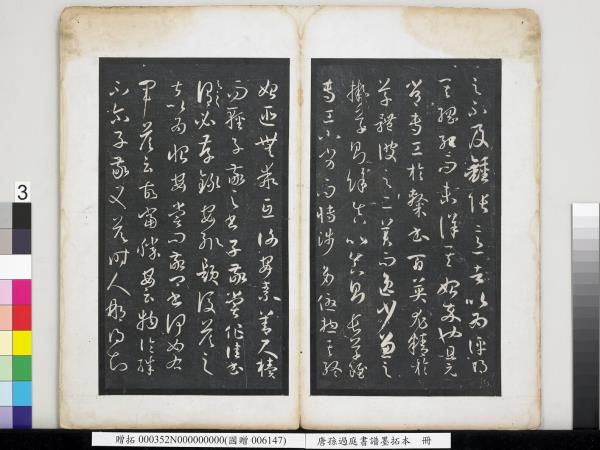 之不及鍾張意者以為評得
其綱紀而未詳其始卒也且元
常專工於隸書百英尤精於
草體彼之二美而逸少兼之
擬草則餘真比真則長草雖
專工小劣而博涉多優揔其終
始匪無乖互謝安素善尺櫝
而輕子敬之書子敬嘗作佳書
與之謂必存錄安輒題後答之
甚以為恨安嘗問敬卿書何如右
軍答云故當勝安云物論殊
不爾子敬又答時人那得知
3
贈拓 000352N000000000(國贈 006147)
唐孫過庭書譜墨拓本 冊